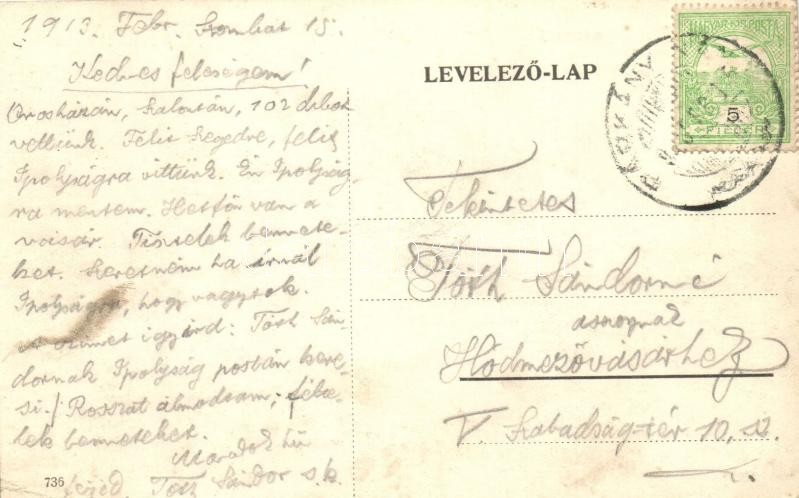 1913. Febr. Szombat 15.
Kedves feleségem!
Orosházán, Szalontán, 102 drbot
vettünk. Felit Szegedre, felit
Ipolyságra vittünk. Én Ipolyság-
ra mentem. Hetfőn van a
vásár. Tisztelek bennete-
ket. Szeretném ha írnál
Ipolyságra, hogy vagytok.
A címet így írd: Tóth Sán-
dornak Ipolyság postán kere-
si./ Rosszat álmodtam; félte-
lek benneteket.
Maradok hű
férjed Tóth Sándor s.k.
736
LEVELEZŐ-LAP
MAGYAR KIR. POSTA
5
FILLÉR
Tekintetes
Tóth Sándorné
asszonynak
Hódmezővásárhely
V. Szabadság-tér 10. sz.